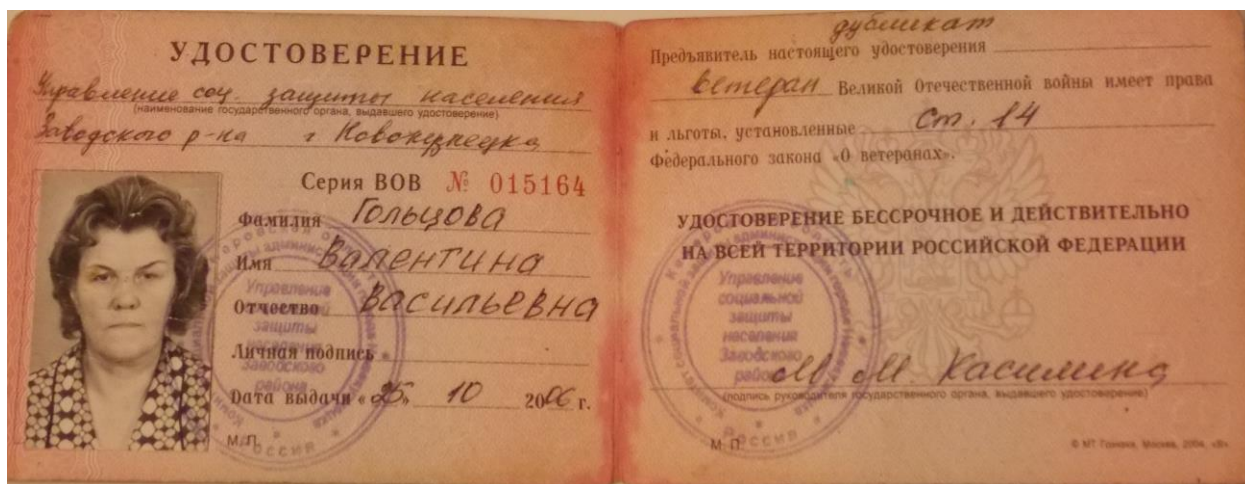 УДОСТОВЕРЕНИЕ
Управление соц. защиты населения
(наименование государственного органа, выдавшего удостоверение)
Заводского р-на г Новокузнецка
Серия ВОВ № 015164
Фамилия Гольцова
Имя Валентина
Отчество Васильевна
Личная подпись
Дата выдачи «25» 10 2006 г.
М.П.
Управление
социальной
защиты
населения
Заводского
района
РОССИЯ
дубликат
Предъявитель настоящего удостоверения
ветеран Великой Отечественной войны имеет права
и льготы, установленные Ст. 14
Федерального закона «О ветеранах».
УДОСТОВЕРЕНИЕ БЕССРОЧНОЕ И ДЕЙСТВИТЕЛЬНО
НА ВСЕЙ ТЕРРИТОРИИ РОССИЙСКОЙ ФЕДЕРАЦИИ
Управление
социальной
защиты
населения
Заводского
района
РОССИЯ
М. М. Касимина
(подпись руководителя государственного органа, выдавшего удостоверение)
М.П.
© МТ Гознака, Москва, 2004, «В».